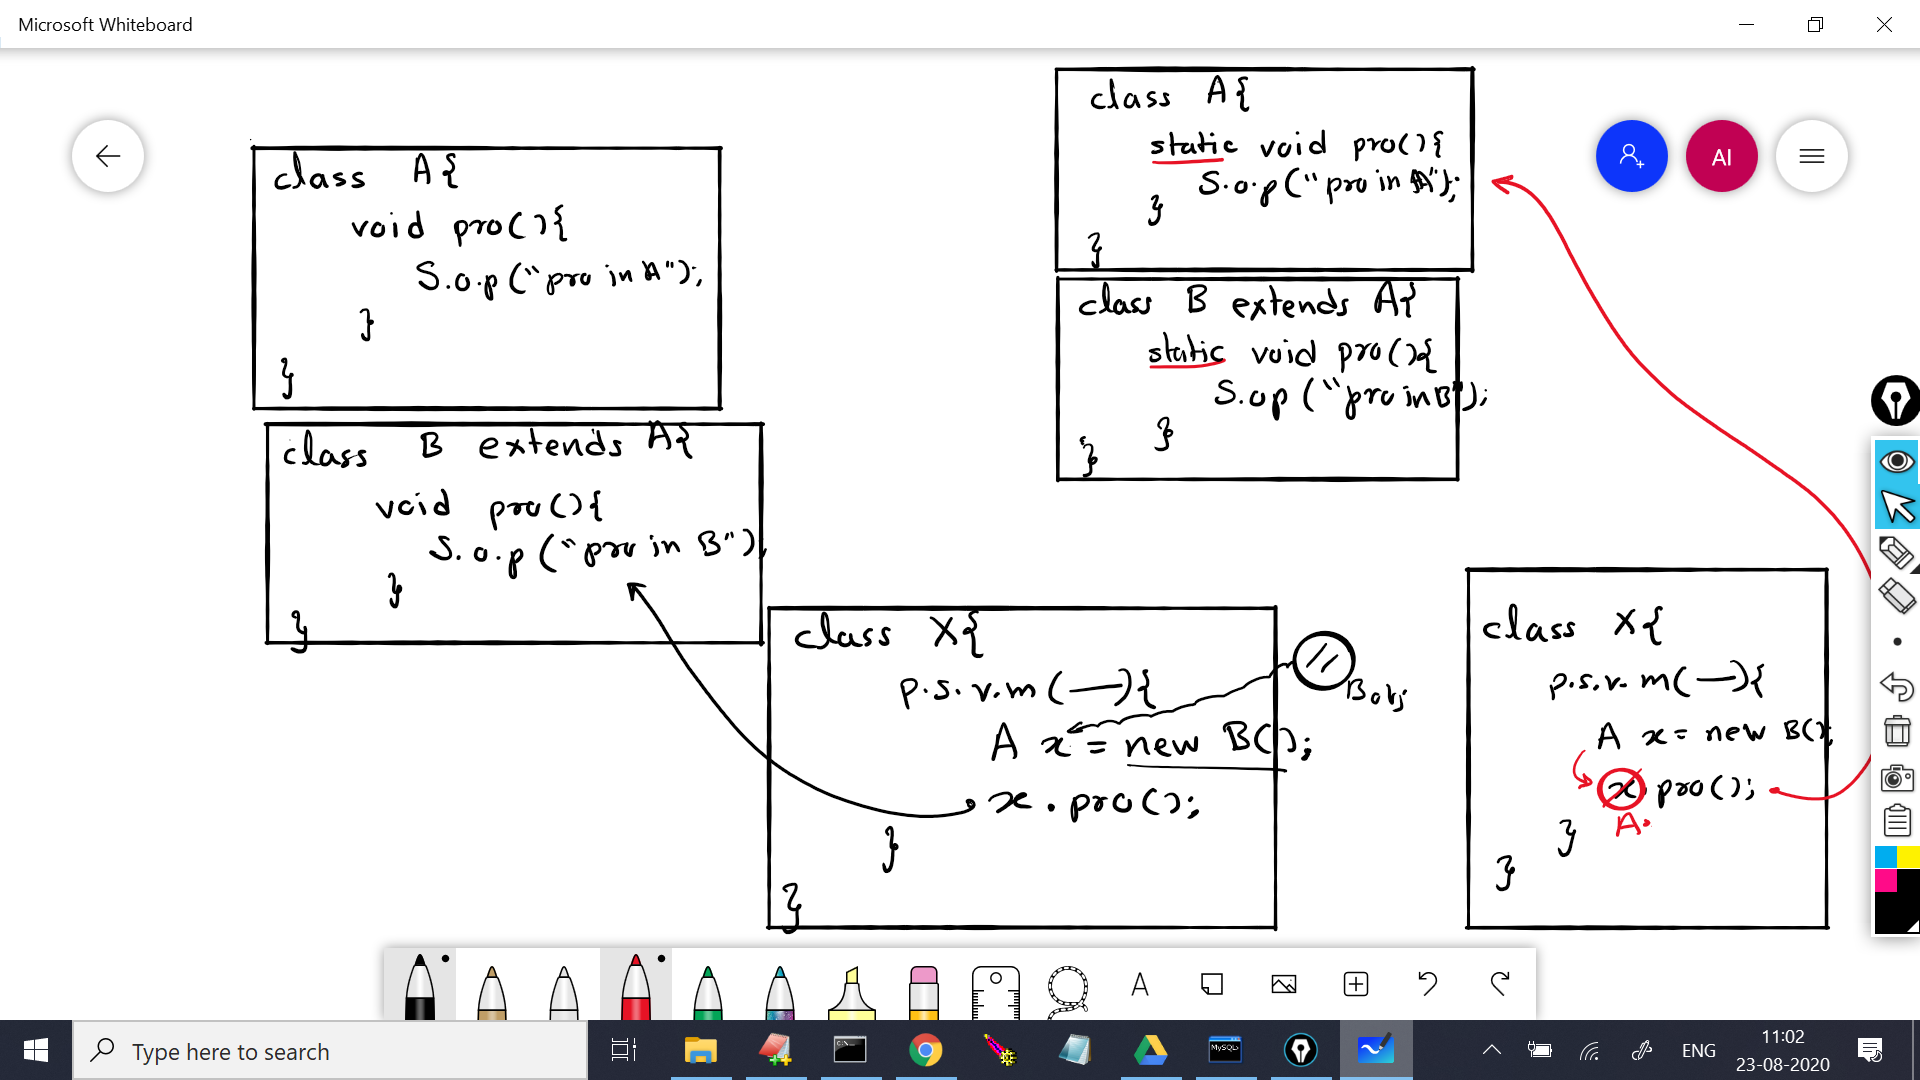 Microsoft Whiteboard
class A{
void pro(){
S.o.p("pro in A");
}
}
class B extends A{
void pro(){
S.o.p("pro in B");
}
}
class X{
p.s.v.m(—){
A x = new B();
x.pro();
}
}
B obj
class A{
static void pro(){
S.o.p("pro in A");
}
}
class B extends A{
static void pro(){
S.op("pro in B");
}
}
class X{
p.s.v.m(—){
A x = new B();
x.pro();
A.
}
}
AI
A
Type here to search
C:\_
MySQL
ENG
11:02
23-08-2020